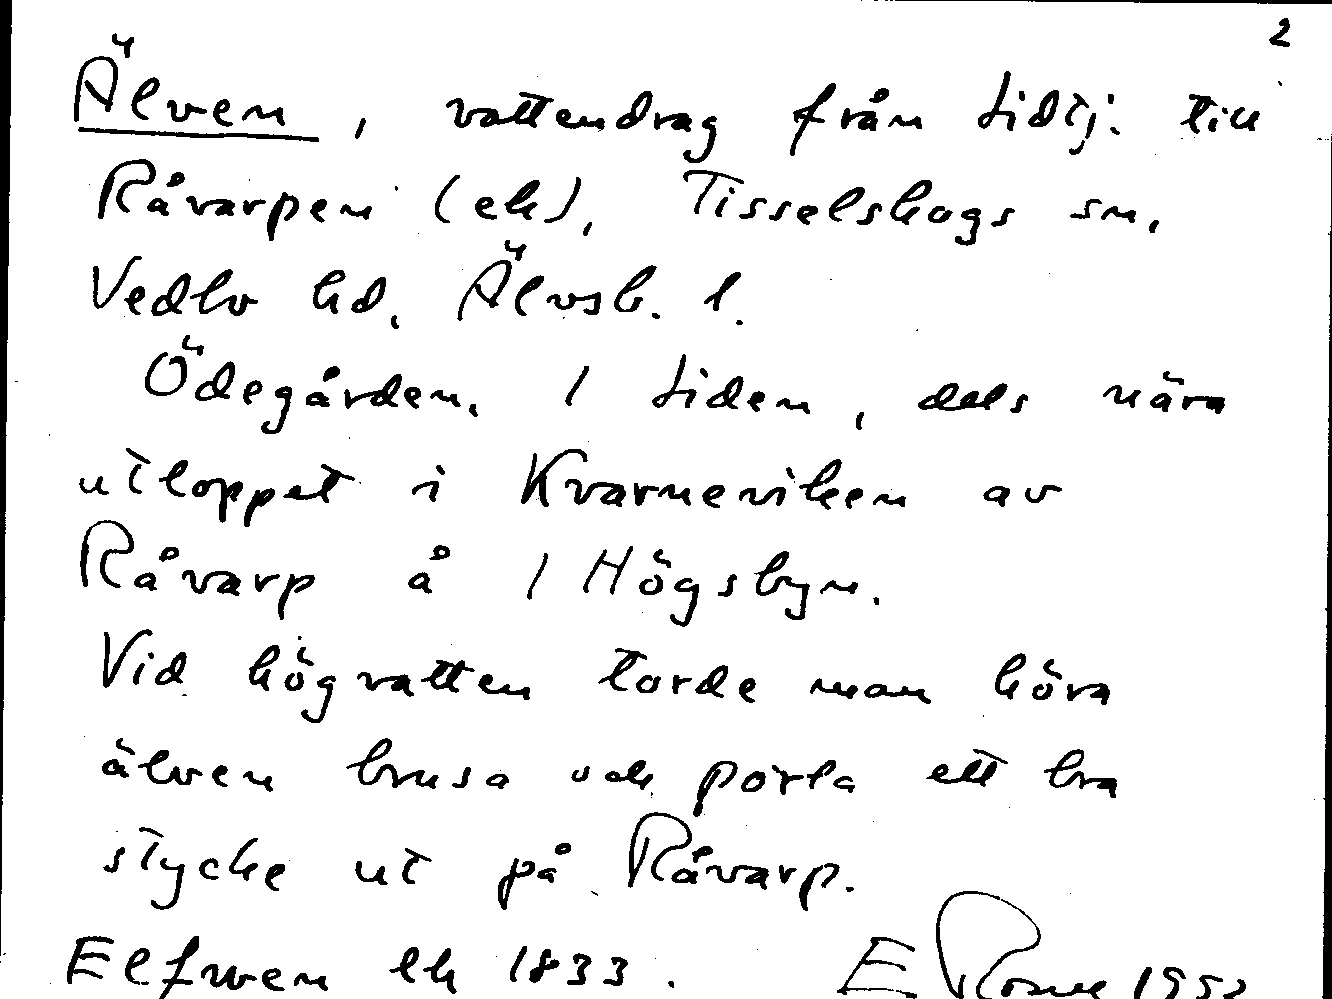 2
Älven, vattendrag från Lidtj. till
Råvarpen (ek), Tisselskogs sn,
Vedbo hd, Älvsb. l.
Ödegården, 1 Liden, dels nära
utloppet i Kvarneviken av
Råvarp å 1 Högsbyn.
Vid högvatten torde man höra
älven brusa och porla ett bra
stycke ut på Råvarp.
Elfwen lk 1833. E